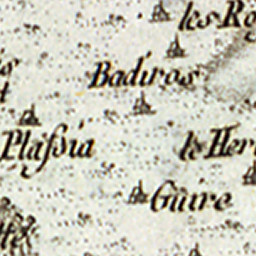 les Ro
Badiros
Plaſsia
le Her
Guire